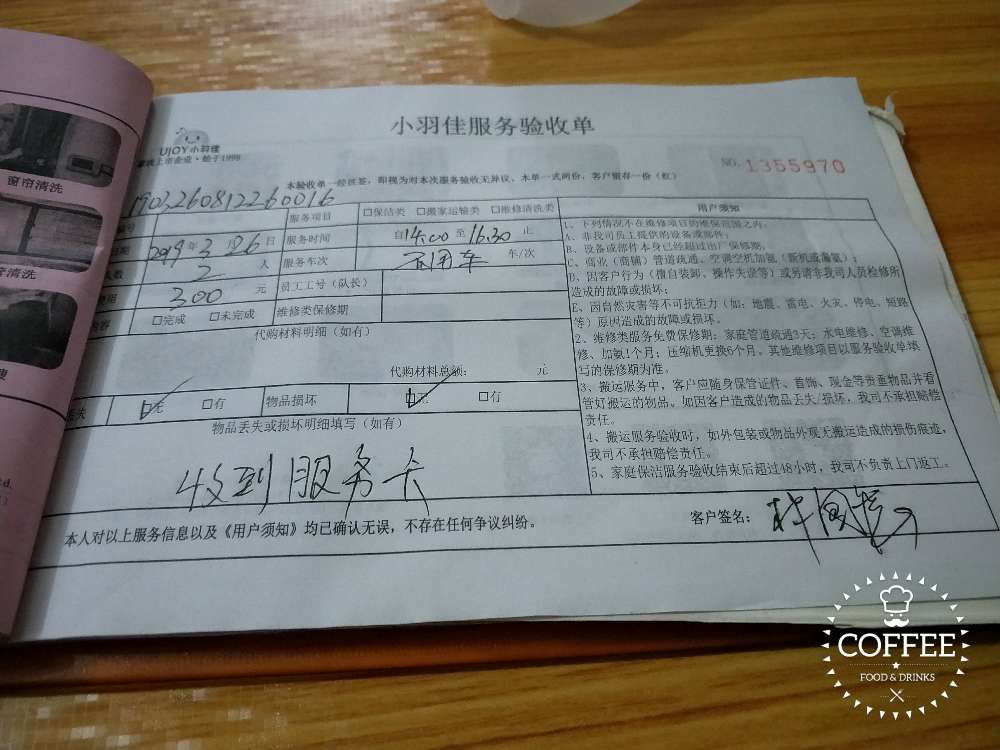 小羽佳服务验收单
UJOY小羽佳
家政上市企业·始于1998
NO. 1355970
本验收单一经核签，即视为对本次服务验收无异议，本单一式两份，客户留存一份（红）
服务项目 □保洁类 □搬家运输类 □维修清洗类
2019年3月26日 服务时间 自14:00至16:30止
人数 2人 服务车次 车/次
300元 员工工号（队长）
□完成 □未完成 维修类保修期
代购材料明细（如有）
代购材料总额： 元
丢失 □无 □有 物品损坏 □无 □有
物品丢失或损坏明细填写（如有）
收到服务卡
用户须知
1、下列情况不在维修项目的维保范围之内：
A、非我司员工提供的设备或部件；
B、设备或部件本身已经超过出厂保修期。
C、商业（商铺）管道疏通、空调空机加氨（新机或漏氨）；
D、因客户行为（擅自装卸、操作失误等）或另请非我司人员检修所
造成的故障或损坏；
E、因自然灾害等不可抗拒力（如：地震、雷电、火灾、停电、短路
等）原因造成的故障或损坏。
2、维修类服务免费保修期：家庭管道疏通3天；水电维修、空调维
修、加氨1个月；压缩机更换6个月。其他维修项目以服务验收单填
写的保修期为准。
3、搬运服务中，客户应随身保管证件、首饰、现金等贵重物品并看
管好搬运的物品。如因客户造成的物品丢失/损坏，我司不承担赔偿
责任。
4、搬运服务验收时，如外包装或物品外观无搬运造成的损伤痕迹，
我司不承担赔偿责任。
5、家庭保洁服务验收结束后超过48小时，我司不负责上门返工。
本人对以上服务信息以及《用户须知》均已确认无误，不存在任何争议纠纷。
客户签名：
窗帘清洗
清洗
COFFEE
FOOD & DRINKS